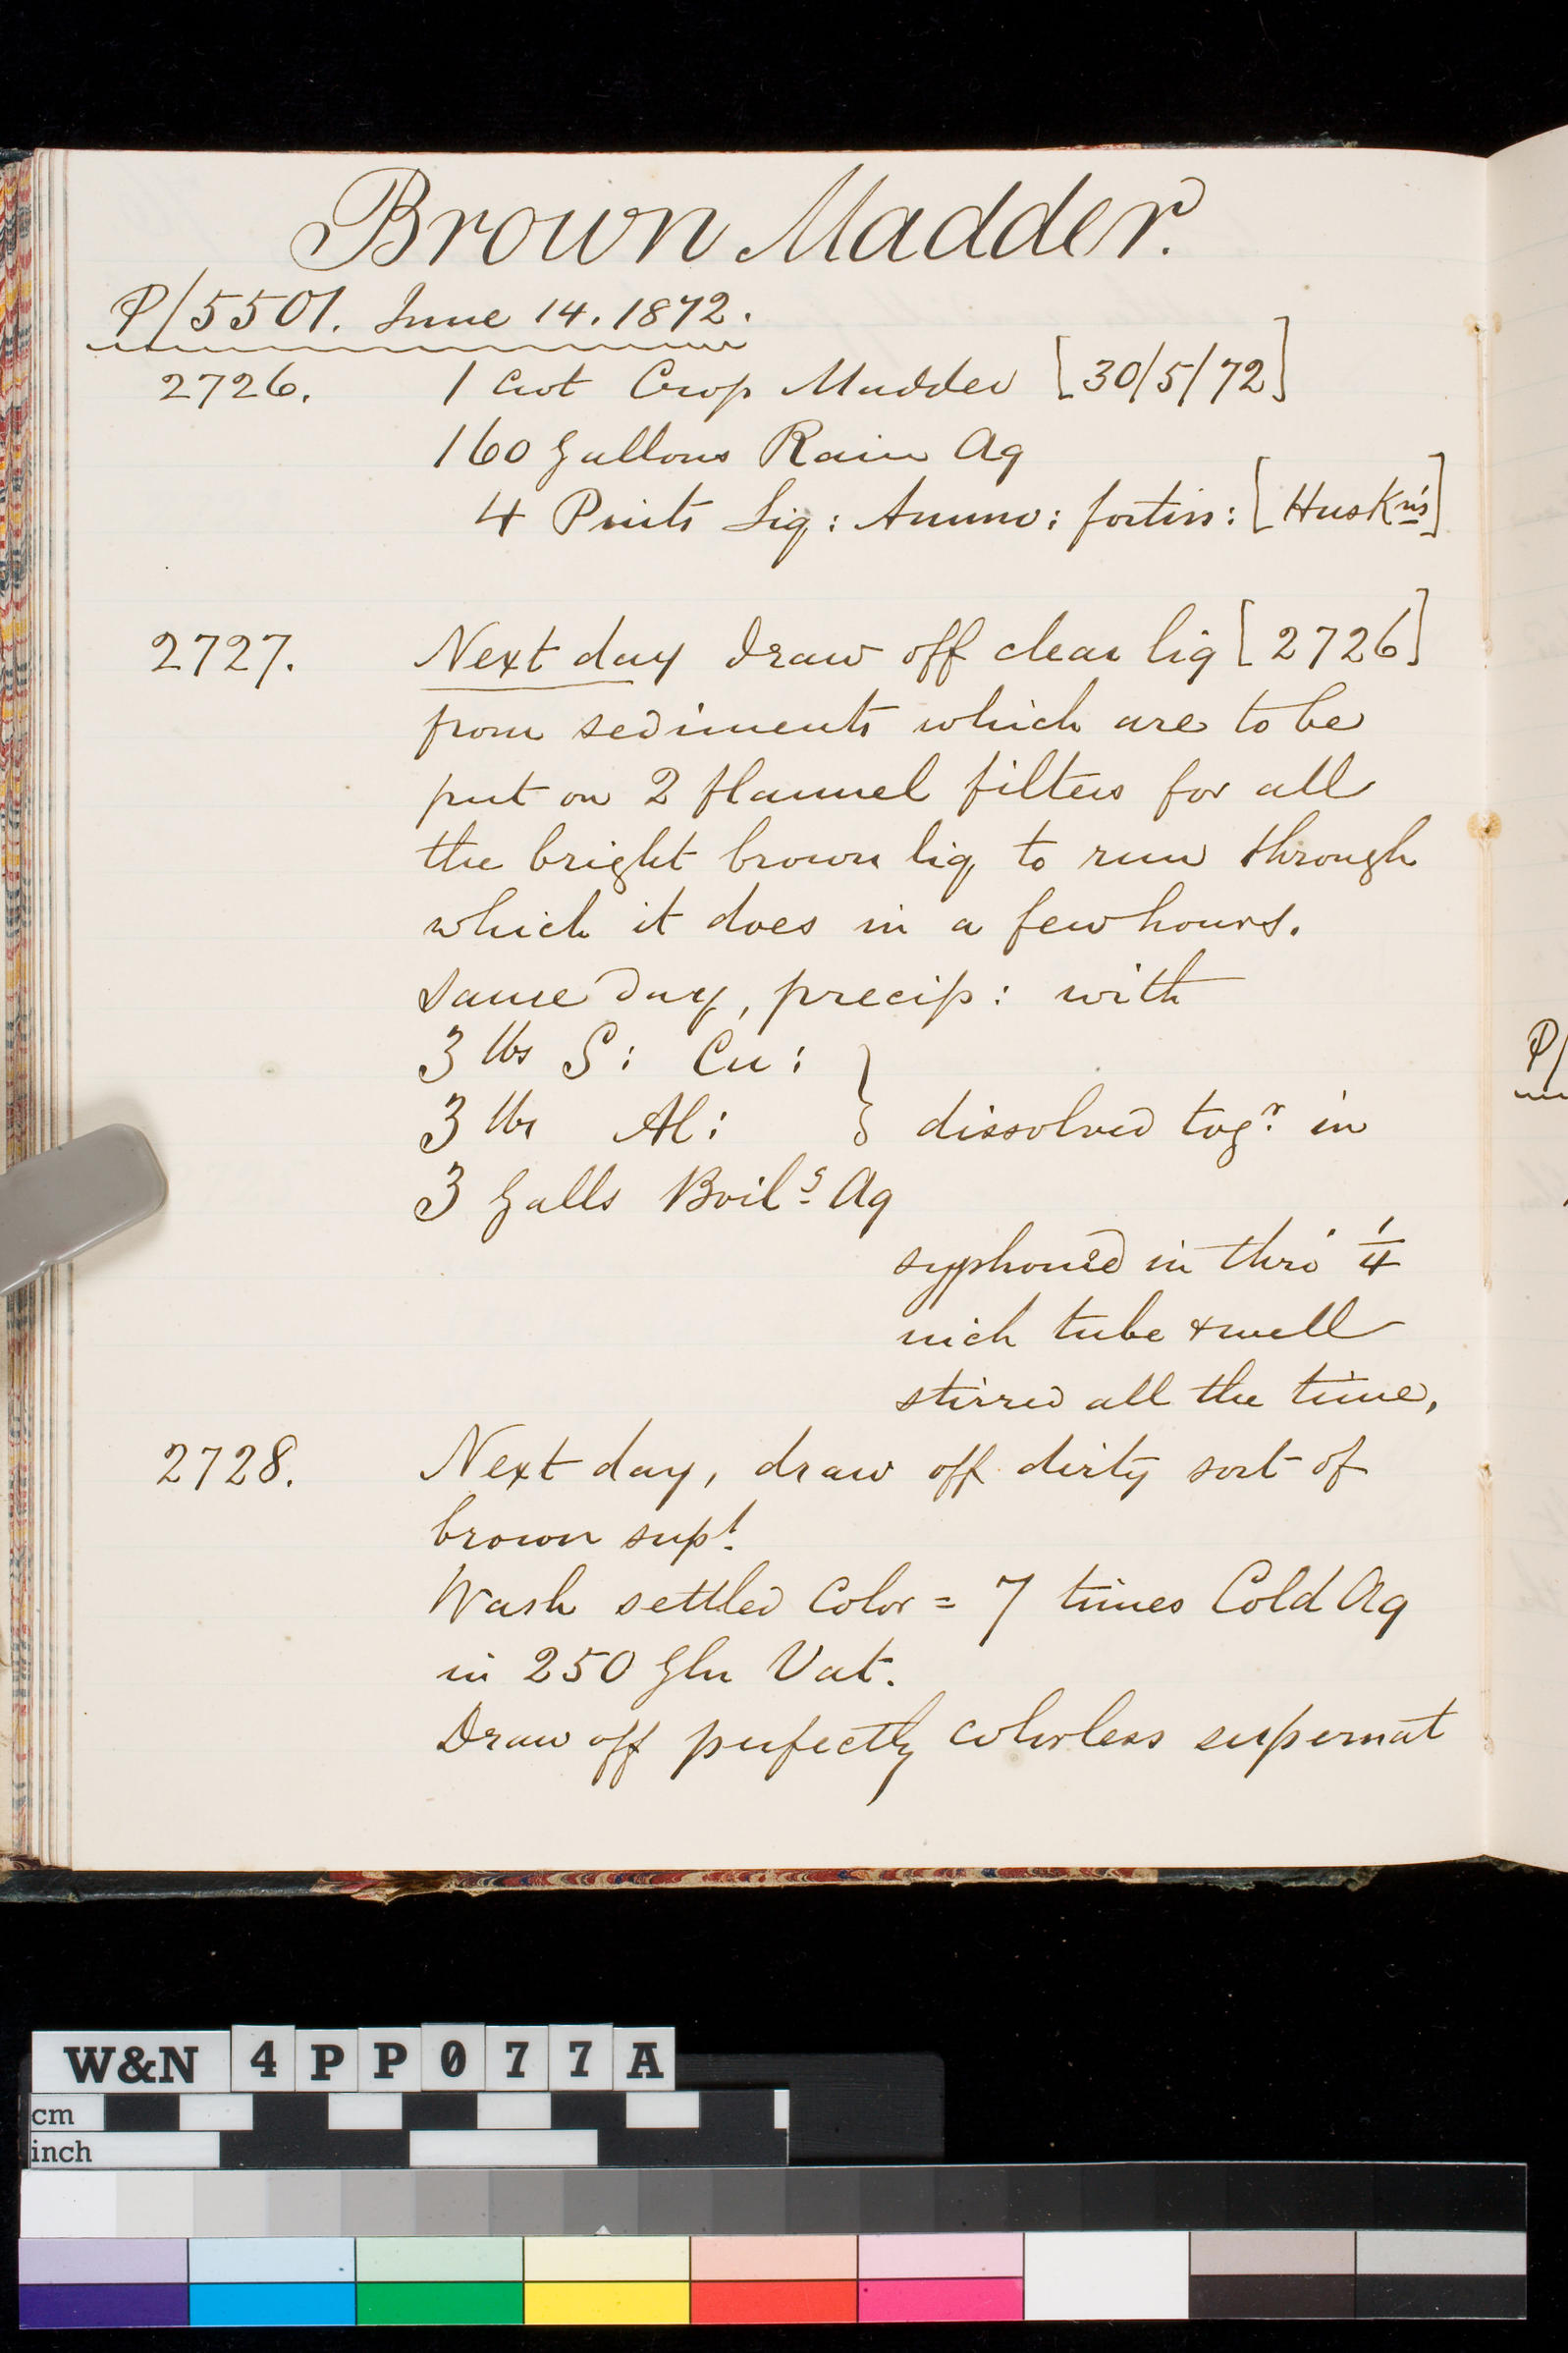 Brown Madder.
P/5501. June 14. 1872.
2726. 1 Cwt Crop Madder [30/5/72]
160 Gallons Rain Aq
4 Pints Liq: Ammo: fortiss: [Huskn's]
2727. Next day draw off clear liq [2726]
from sediments which are to be
put on 2 flannel filters for all
the bright brown liq to run through
which it does in a few hours.
Same day, precip: with
3 lbs S: Cu:
3 lbs Al: } dissolved togr. in
3 Galls Boilg. Aq
syphoned in thro' 1/4
inch tube & well
stirred all the time,
2728. Next day, draw off dirty sort of
brown supt.
Wash settled Color = 7 times Cold Aq
in 250 Gln Vat.
Draw off perfectly colorless supernat
P/
W&N 4PP077A
cm
inch